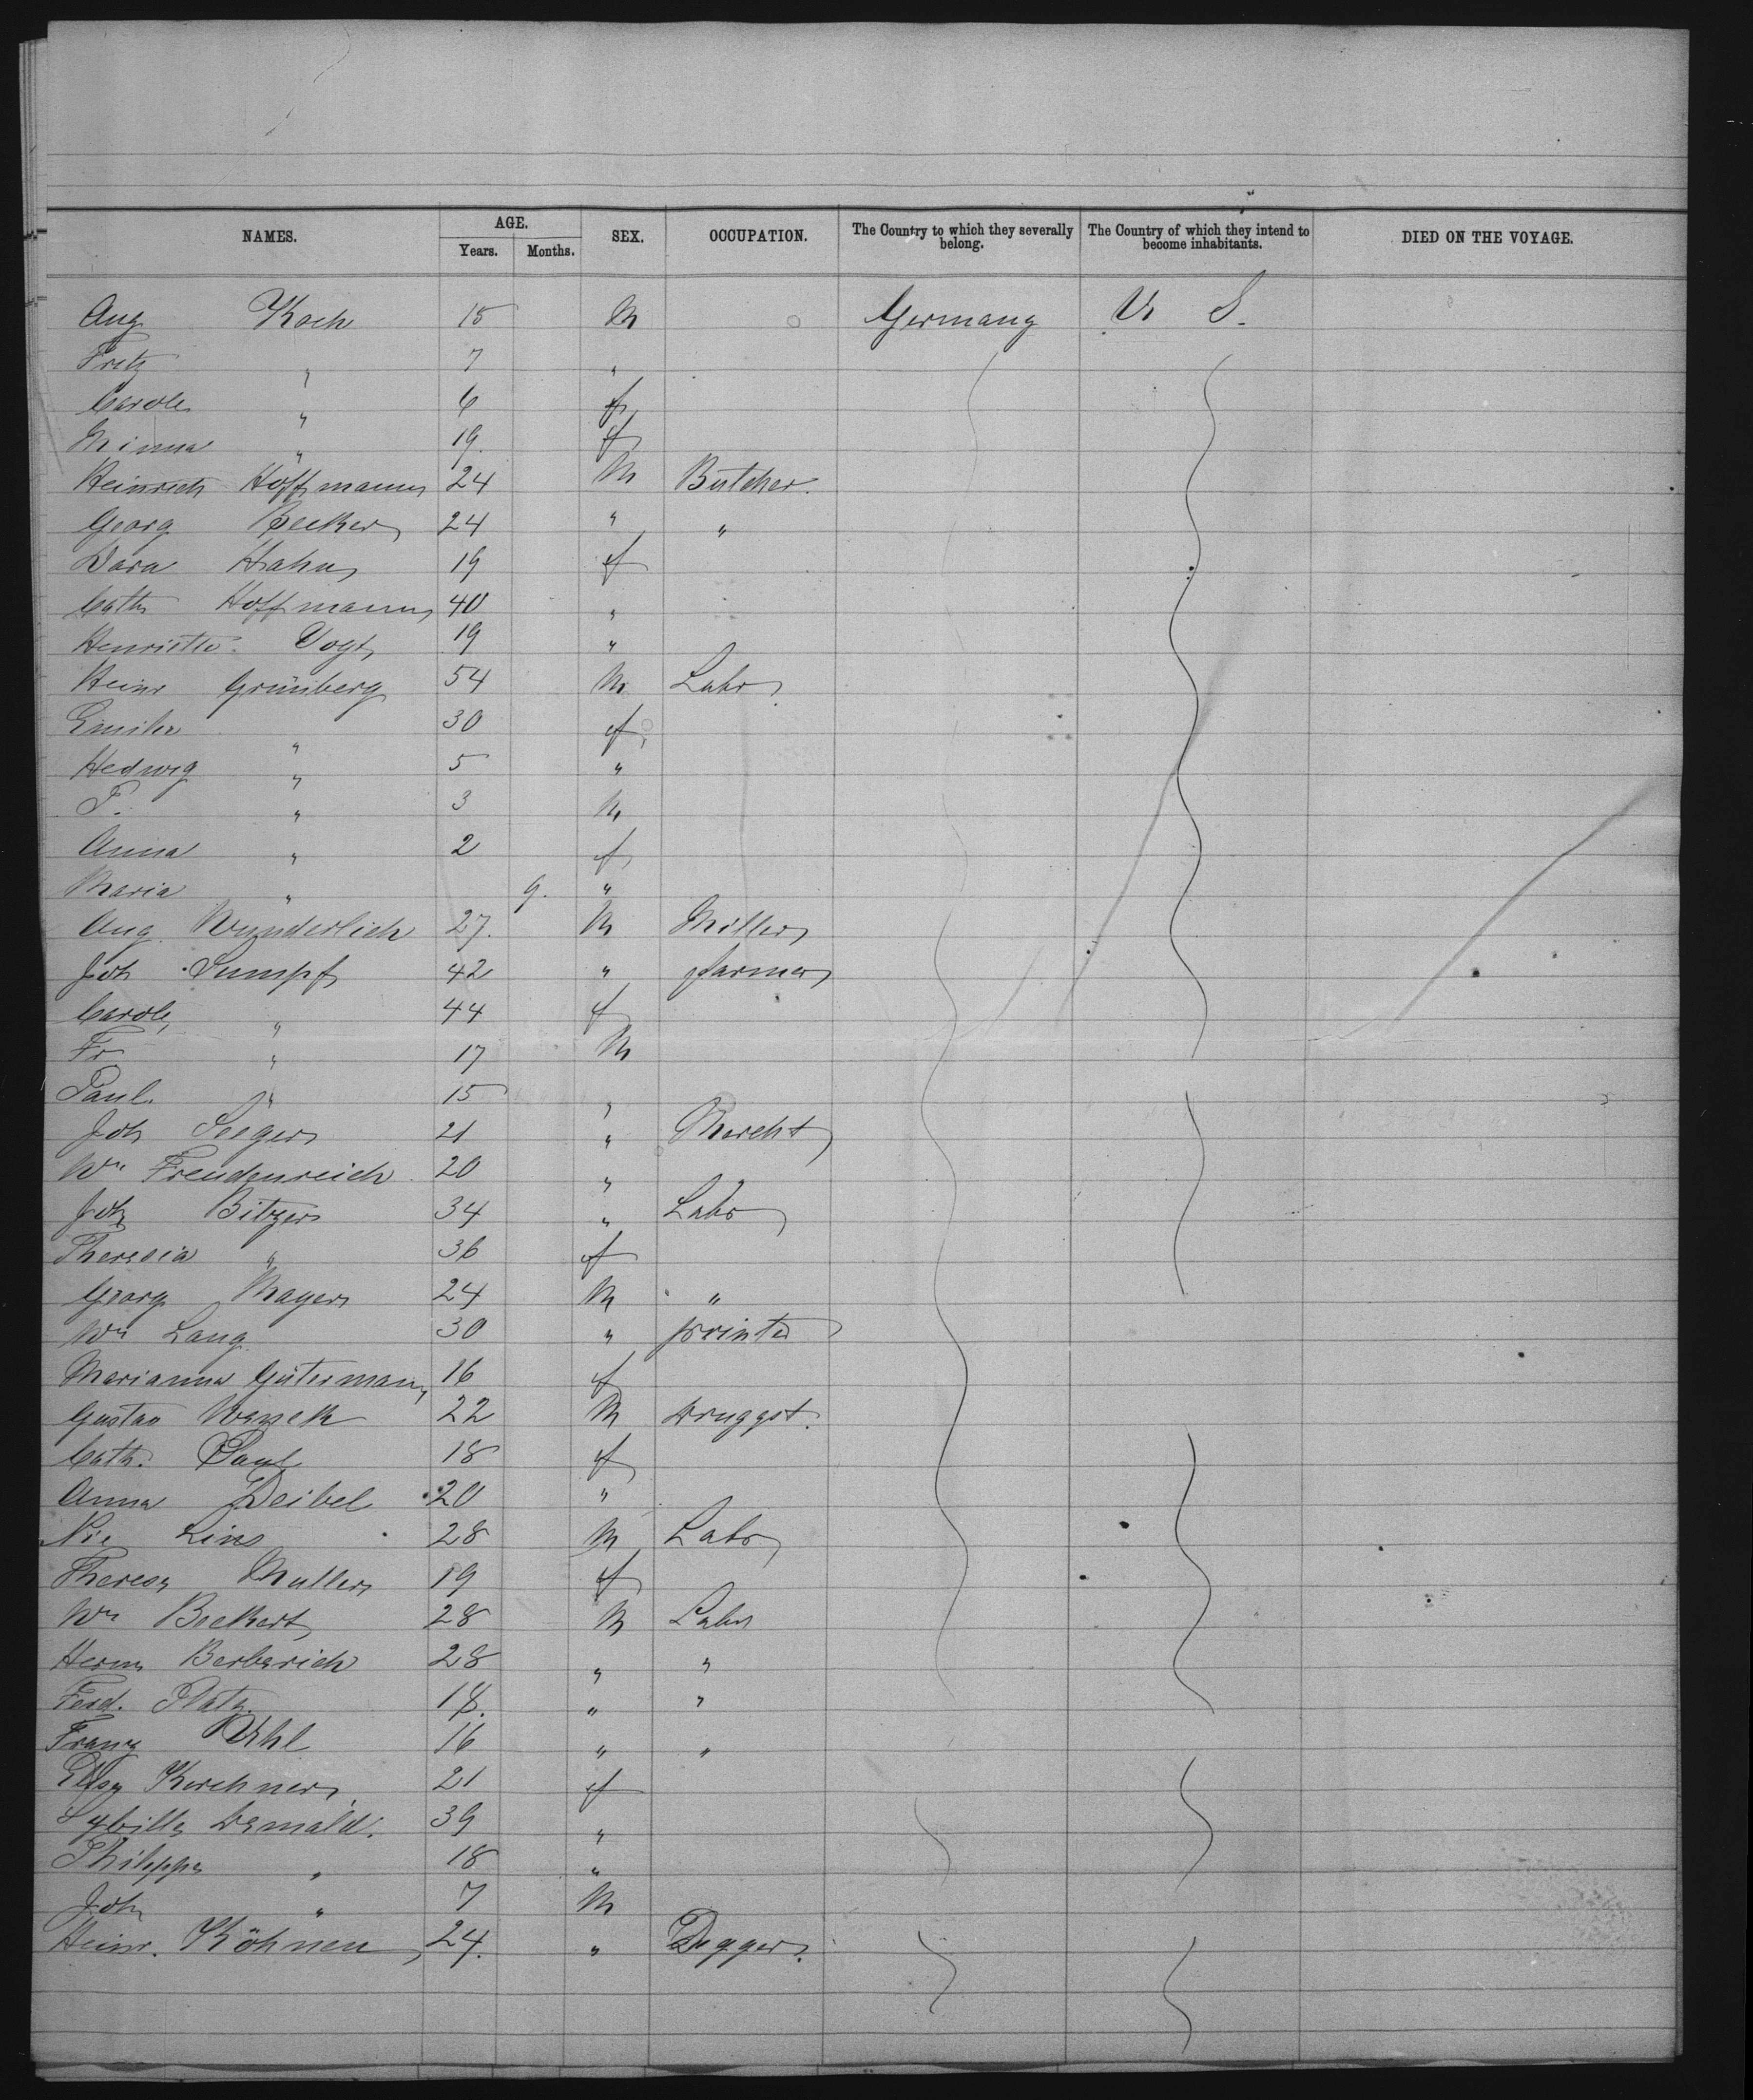 NAMES. AGE. SEX. OCCUPATION. The Country to which they severally belong. The Country of which they intend to become inhabitants. DIED ON THE VOYAGE.
Years. Months.
Aug Koch 15 M Germany U S.
Fritz " 7 "
Carole " 6 f
Minna " 19. f
Heinrich Hoffmann 24 M Butcher.
Georg Becker 24 " "
Dora Hahn 19 f
Cath Hoffmann 40 "
Henriette Vogt 19 "
Heinr Grünberg 54 M Labr
Emilie " 30 f
Hedwig " 5 "
F. " 3 M
Anna " 2 f
Maria " 9. "
Aug Wunderlich 27. M Miller
Joh Sumpf 42 " farmer
Carole " 44 f
Fr " 17 M
Paul. " 15 "
Joh Seeger 21 " Marcht
Wm Freudenreich 20 "
Joh Bitzer 34 " Labr
Theresia " 36 f
Georg Mayer 24 M "
Wm Lang 30 " printer
Marianna Gütermann 16 f
Gustav 22 M druggst.
Cath. Paul 18 f
Anna Deibel 20 "
Nic Lins 28 M Labr
Theresa Muller 19 f
Wm Beckert 28 M Labr
Herm Berberich 28 " "
Ferd. Platz 18. " "
Franz Uhl 16 " "
Elisa Kirchner 21 f
Sybilla 39 "
Philippa " 18 "
Joh " 7 M
Heinr. Köhnen 24. " Digger.